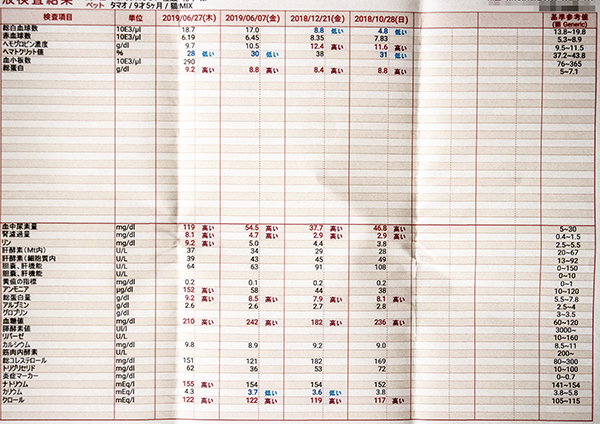 液検査結果
ペット タマオ / 9才5ヶ月 / 猫:MIX
検査項目 単位 2019/06/27(木) 2019/06/07(金) 2018/12/21(金) 2018/10/28(日) 基準参考値
(猫 Generic)
総白血球数 10E3/μl 18.7 17.0 8.8 低い 4.8 低い 13.8~19.8
赤血球数 10E3/μl 6.19 6.45 8.35 7.83 5.3~8.9
ヘモグロビン濃度 g/dl 9.7 10.5 12.4 高い 11.6 高い 9.5~11.5
ヘマトクリット値 % 28 低い 30 低い 38 31 低い 37.2~43.8
血小板数 10E3/μl 290 76~365
総蛋白 g/dl 9.2 高い 8.8 高い 8.4 高い 8.8 高い 5~7.1
血中尿素量 mg/dl 119 高い 54.5 高い 37.7 高い 46.8 高い 5~30
腎濾過量 mg/dl 8.1 高い 4.7 高い 2.9 高い 2.9 高い 0.4~1.5
リン mg/dl 9.2 高い 5.0 4.4 3.8 2.5~5.5
肝酵素(Mt内) U/L 37 34 29 28 20~67
肝酵素(細胞質内) U/L 39 43 45 49 13~92
胆嚢、肝機能 U/L 64 63 91 108 0~150
胆嚢、肝機能 U/L 0~10
黄疸の指標 mg/dl 0.2 0.1 0.2 0.2 0~1
アンモニア μg/dl 152 高い 58 44 38 10~120
総蛋白量 g/dl 9.2 高い 8.5 高い 7.9 高い 8.1 高い 5.5~7.8
アルブミン g/dl 2.6 2.6 2.7 2.8 2.5~4
グロブリン g/dl 3~3.5
血糖値 mg/dl 210 高い 242 高い 182 高い 236 高い 60~120
膵酵素値 U/l 3000~
リパーゼ U/L 10~160
カルシウム mg/dl 9.8 8.9 9.2 9.0 8.5~11
筋肉内酵素 U/L 200~
総コレステロール mg/dl 151 121 182 169 80~300
トリグリセリド mg/dl 62 36 53 72 10~100
炎症マーカー mg/dl 0~0.7
ナトリウム mEq/l 155 高い 154 154 152 141~154
カリウム mEq/l 4.3 3.7 低い 3.6 低い 3.8 3.8~5.8
クロール mEq/l 122 高い 122 高い 119 高い 117 高い 105~115